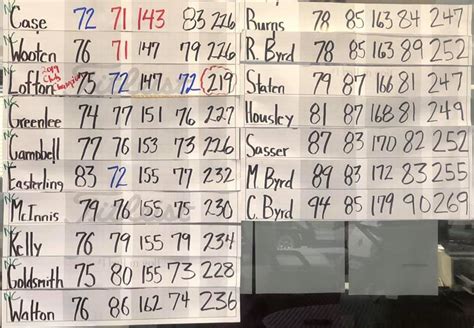 Case 72 71 143 83 226
Wooten 76 71 147 79 226
Club Champion
Lofton 75 72 147 72 219
Greenlee 74 77 151 76 227
Campbell 77 76 153 73 226
Easterling 83 72 155 77 232
McInnis 79 76 155 75 230
Kelly 76 79 155 79 234
Goldsmith 75 80 155 73 228
Walton 76 86 162 74 236
Burns 78 85 163 84 247
R. Byrd 78 85 163 89 252
Slaten 79 87 166 81 247
Housley 81 87 168 81 249
Sasser 87 83 170 82 252
M Byrd 89 83 172 83 255
C. Byrd 94 85 179 90 269